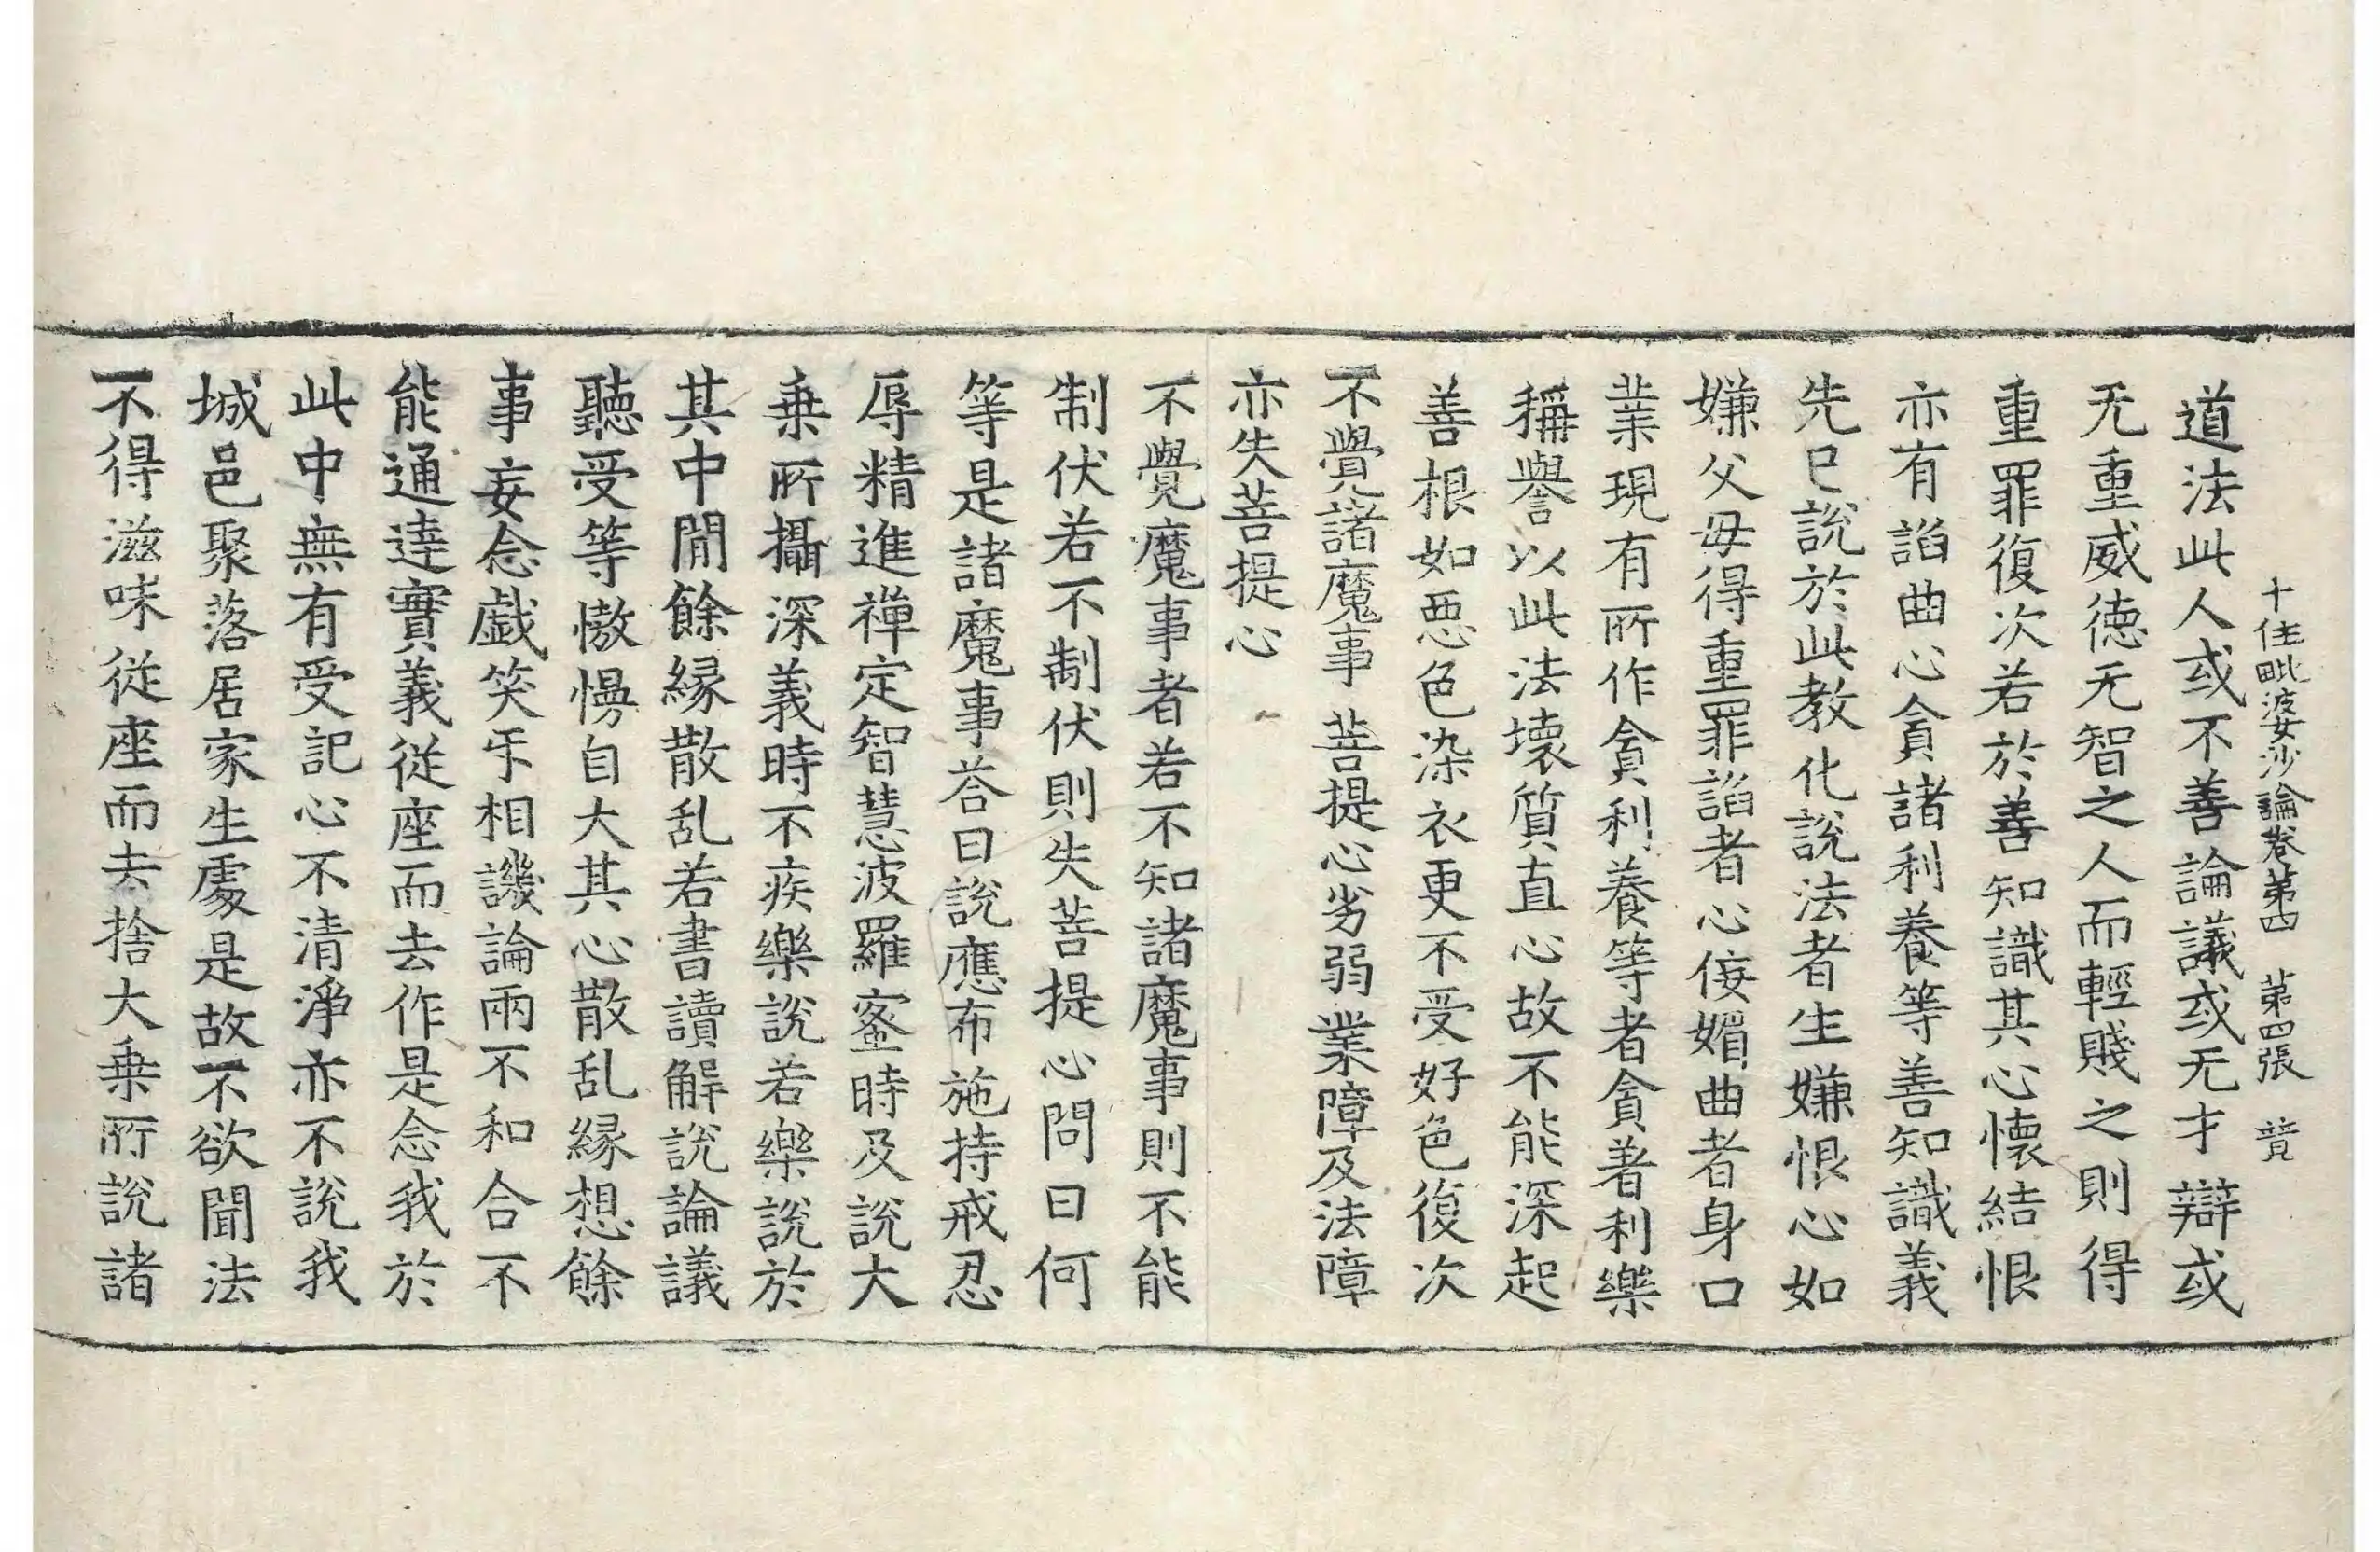 十住毗婆沙論卷第四　第四張　競
道法此人或不善論議或无才辯或
无重威徳无智之人而輕賤之則得
重罪復次若於善知識其心懷結恨
亦有諂曲心貪諸利養等善知識義
先已說於此教化說法者生嫌恨心如
嫌父母得重罪諂者心侫媚曲者身口
業現有所作貪利養等者貪著利樂
稱譽以此法壞質直心故不能深起
善根如惡色染衣更不受好色復次
不覺諸魔事　菩提心劣弱業障及法障
亦失菩提心
不覺魔事者若不知諸魔事則不能
制伏若不制伏則失菩提心問曰何
等是諸魔事荅曰說應布施持戒忍
辱精進禪定智慧波羅蜜時及說大
乗所攝深義時不疾樂說若樂說於
其中閒餘縁散乱若書讀解說論議
聽受等憿慢自大其心散乱縁想餘
事妄念戲笑乎相譏論兩不和合不
能通達實義従座而去作是念我於
此中無有受記心不清淨亦不說我
城邑聚落居家生處是故不欲聞法
不得滋味従座而去捨大乗所說諸